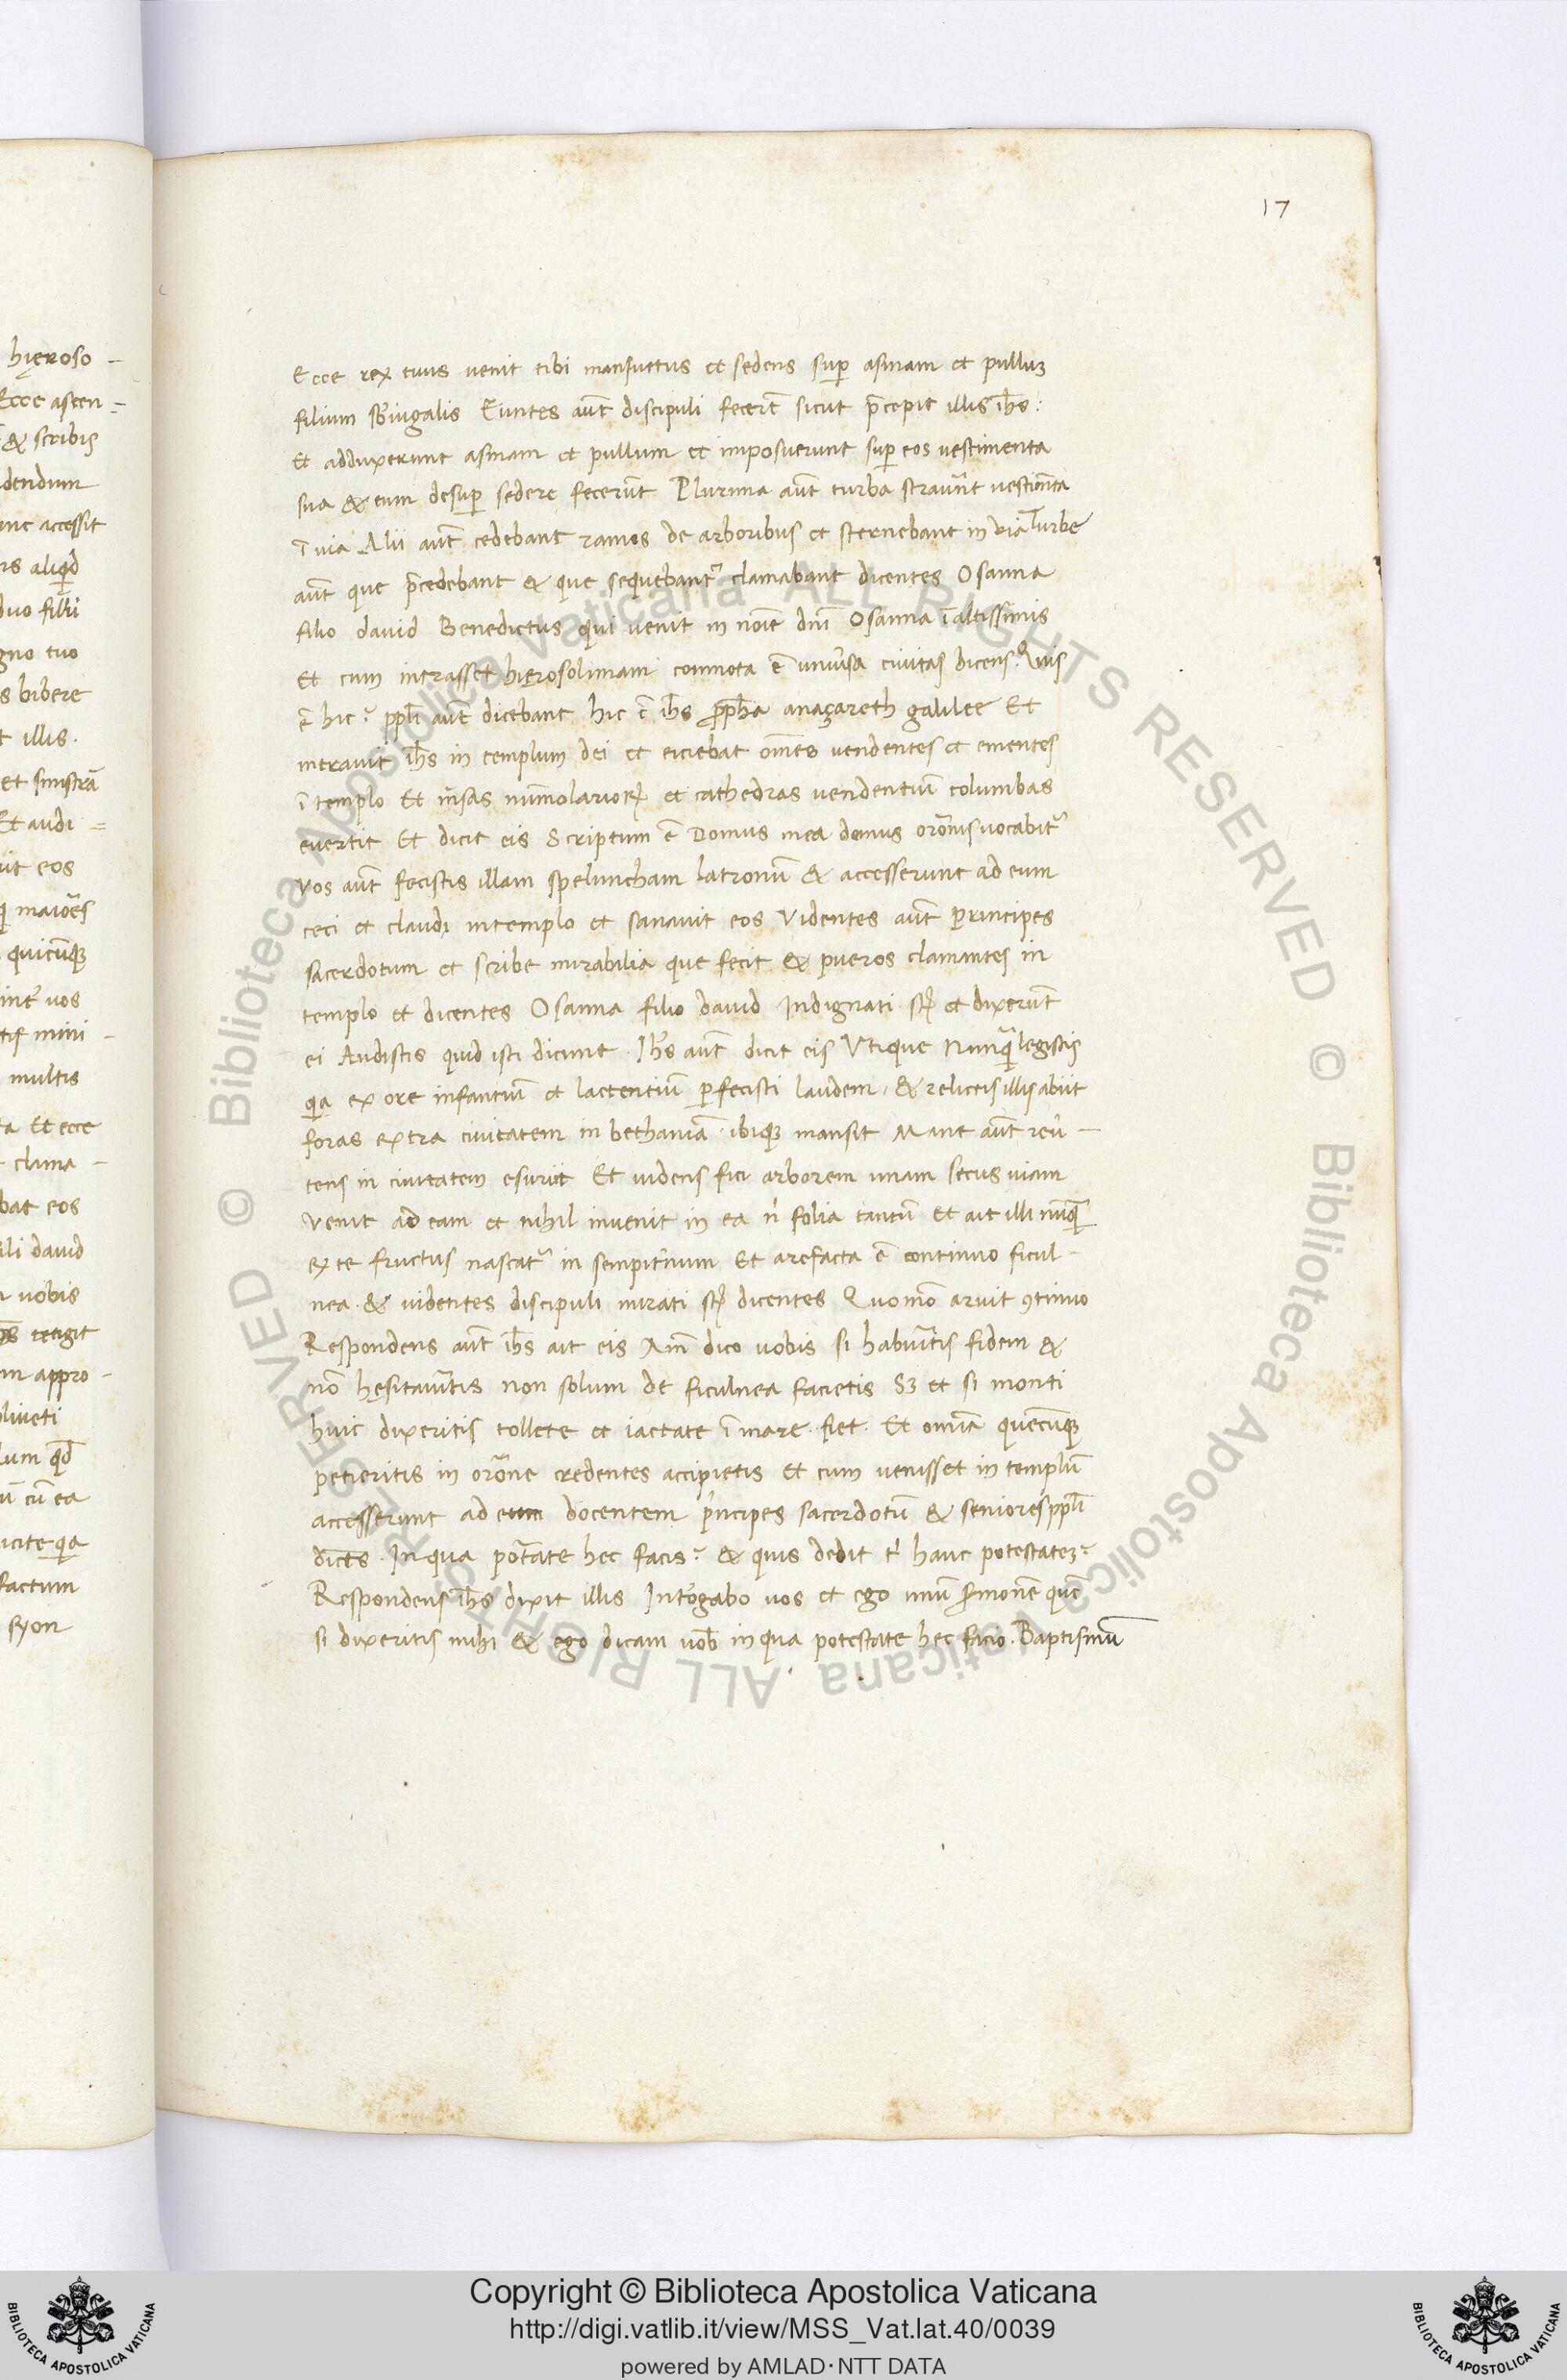 17
hięroso-
Ecce ascen=
& scribis
dendum
unc accessit
rs aliqͥd
duo filii
gno tuo
s bibere
t illis.
et sinistrā
Et audi=
uit eos
qͥ maiores
quicūqꝫ
int̄ vos
mini-
multis
ta Et ecce
clama-
bat eos
ili david
vobis
tetigit
m appro-
oliueti
lum qd̄
ū cū ea
icite qia
factum
syon
Ecce rex tuus uenit tibi mansuetus et sedens suꝑ asinam et pulluꝫ
filium sb̄iugalis Euntes aūt discipuli fecerūt sicut p̄cepit illis ih̄s:
Et adduxerunt asinam et pullum et imposuerunt suꝑ eos vestimenta
sua & eum desuꝑ sedere fecerūt Plurima aūt turba strauūt uestimēta
ī uia Alii aūt cedebant ramos de arboribus et sternebant in via Turbe
aūt que p̄cedebant & que sequebantᷣ clamabant dicentes Osanna
filio david Benedictus qui venit in noīe dn̄i Osanna ī altissimis
et cum intrasset hięrosolimam commota ē uniūsa ciuitas dicens. Quis
ē hic? ppl̄i aūt dicebant hic ē ih̄s ꝓph̄a anaçareth galilee Et
intrauit ih̄s in templum dei et eiciebat om̄es uendentes et ementes
ī templo Et mn̄sas nūmolarioꝝ et cathedras uendentiū columbas
euertit Et dicit eis Scriptum ē Domus mea domus orōnis uocabitᷣ
vos aūt fecistis illam speluncham latronū & accesserunt ad eum
ceci et claudi in templo et sanauit eos Videntes aūt principes
sacerdotum et scribe mirabilia que fecit & pueros clamantes in
templo et dicentes Osanna filio david Indignati sꝭ et dixerūt
ei Audistis quid isti dicunt. Ih̄s aūt dicit eis Vtique Nunqͣ legistis
qia ex ore infantiū et lactentiū ꝑfecisti laudem. & relictis illis abiit
foras extra ciuitatem in bethaniā. ibiqꝫ mansit Mane aūt reū-
tens in ciuitatem esuriit Et uidens fici arborem unam secus viam
Venit ad eam et nihil inuenit in ea n̄ folia tantū et ait illi nūqͣ
ex te fructus nascatᷣ in sempit̄num Et arefacta ē continuo ficul-
nea. & uidentes discipuli mirati sꝭ dicentes Quomō aruit ꝯtinuo
Respondens aūt ih̄s ait eis Am̄ dico uobis si habuītis fidem &
nō hęsitauītis non solum de ficulnea facietis Sꝫ et si monti
huic dixeritis tollete et iactate ī mare. fiet. Et omīa quecūqꝫ
petieritis in orōne credentes accipietis Et cum uenisset in templū
accesserunt ad eum docentem pͥncipes sacerdotū & seniores ppl̄i
dicētes. In qua potātate hec facis? & quis dedit tͥ hanc potestateꝫ?
Respondens ih̄s dixit illis Int̄rogabo uos et ego unū s̄monē quē
si dixeritis mihi & ego dicam uob̄ in qua potestate hec facio. Baptismū
© Biblioteca Apostolica Vaticana ALL RIGHTS RESERVED © Biblioteca Apostolica Vaticana ALL RIGHTS RESERVED
BIBLIOTECA APOSTOLICA VATICANA
Copyright © Biblioteca Apostolica Vaticana
http://digi.vatlib.it/view/MSS_Vat.lat.40/0039
powered by AMLAD·NTT DATA
BIBLIOTECA APOSTOLICA VATICANA